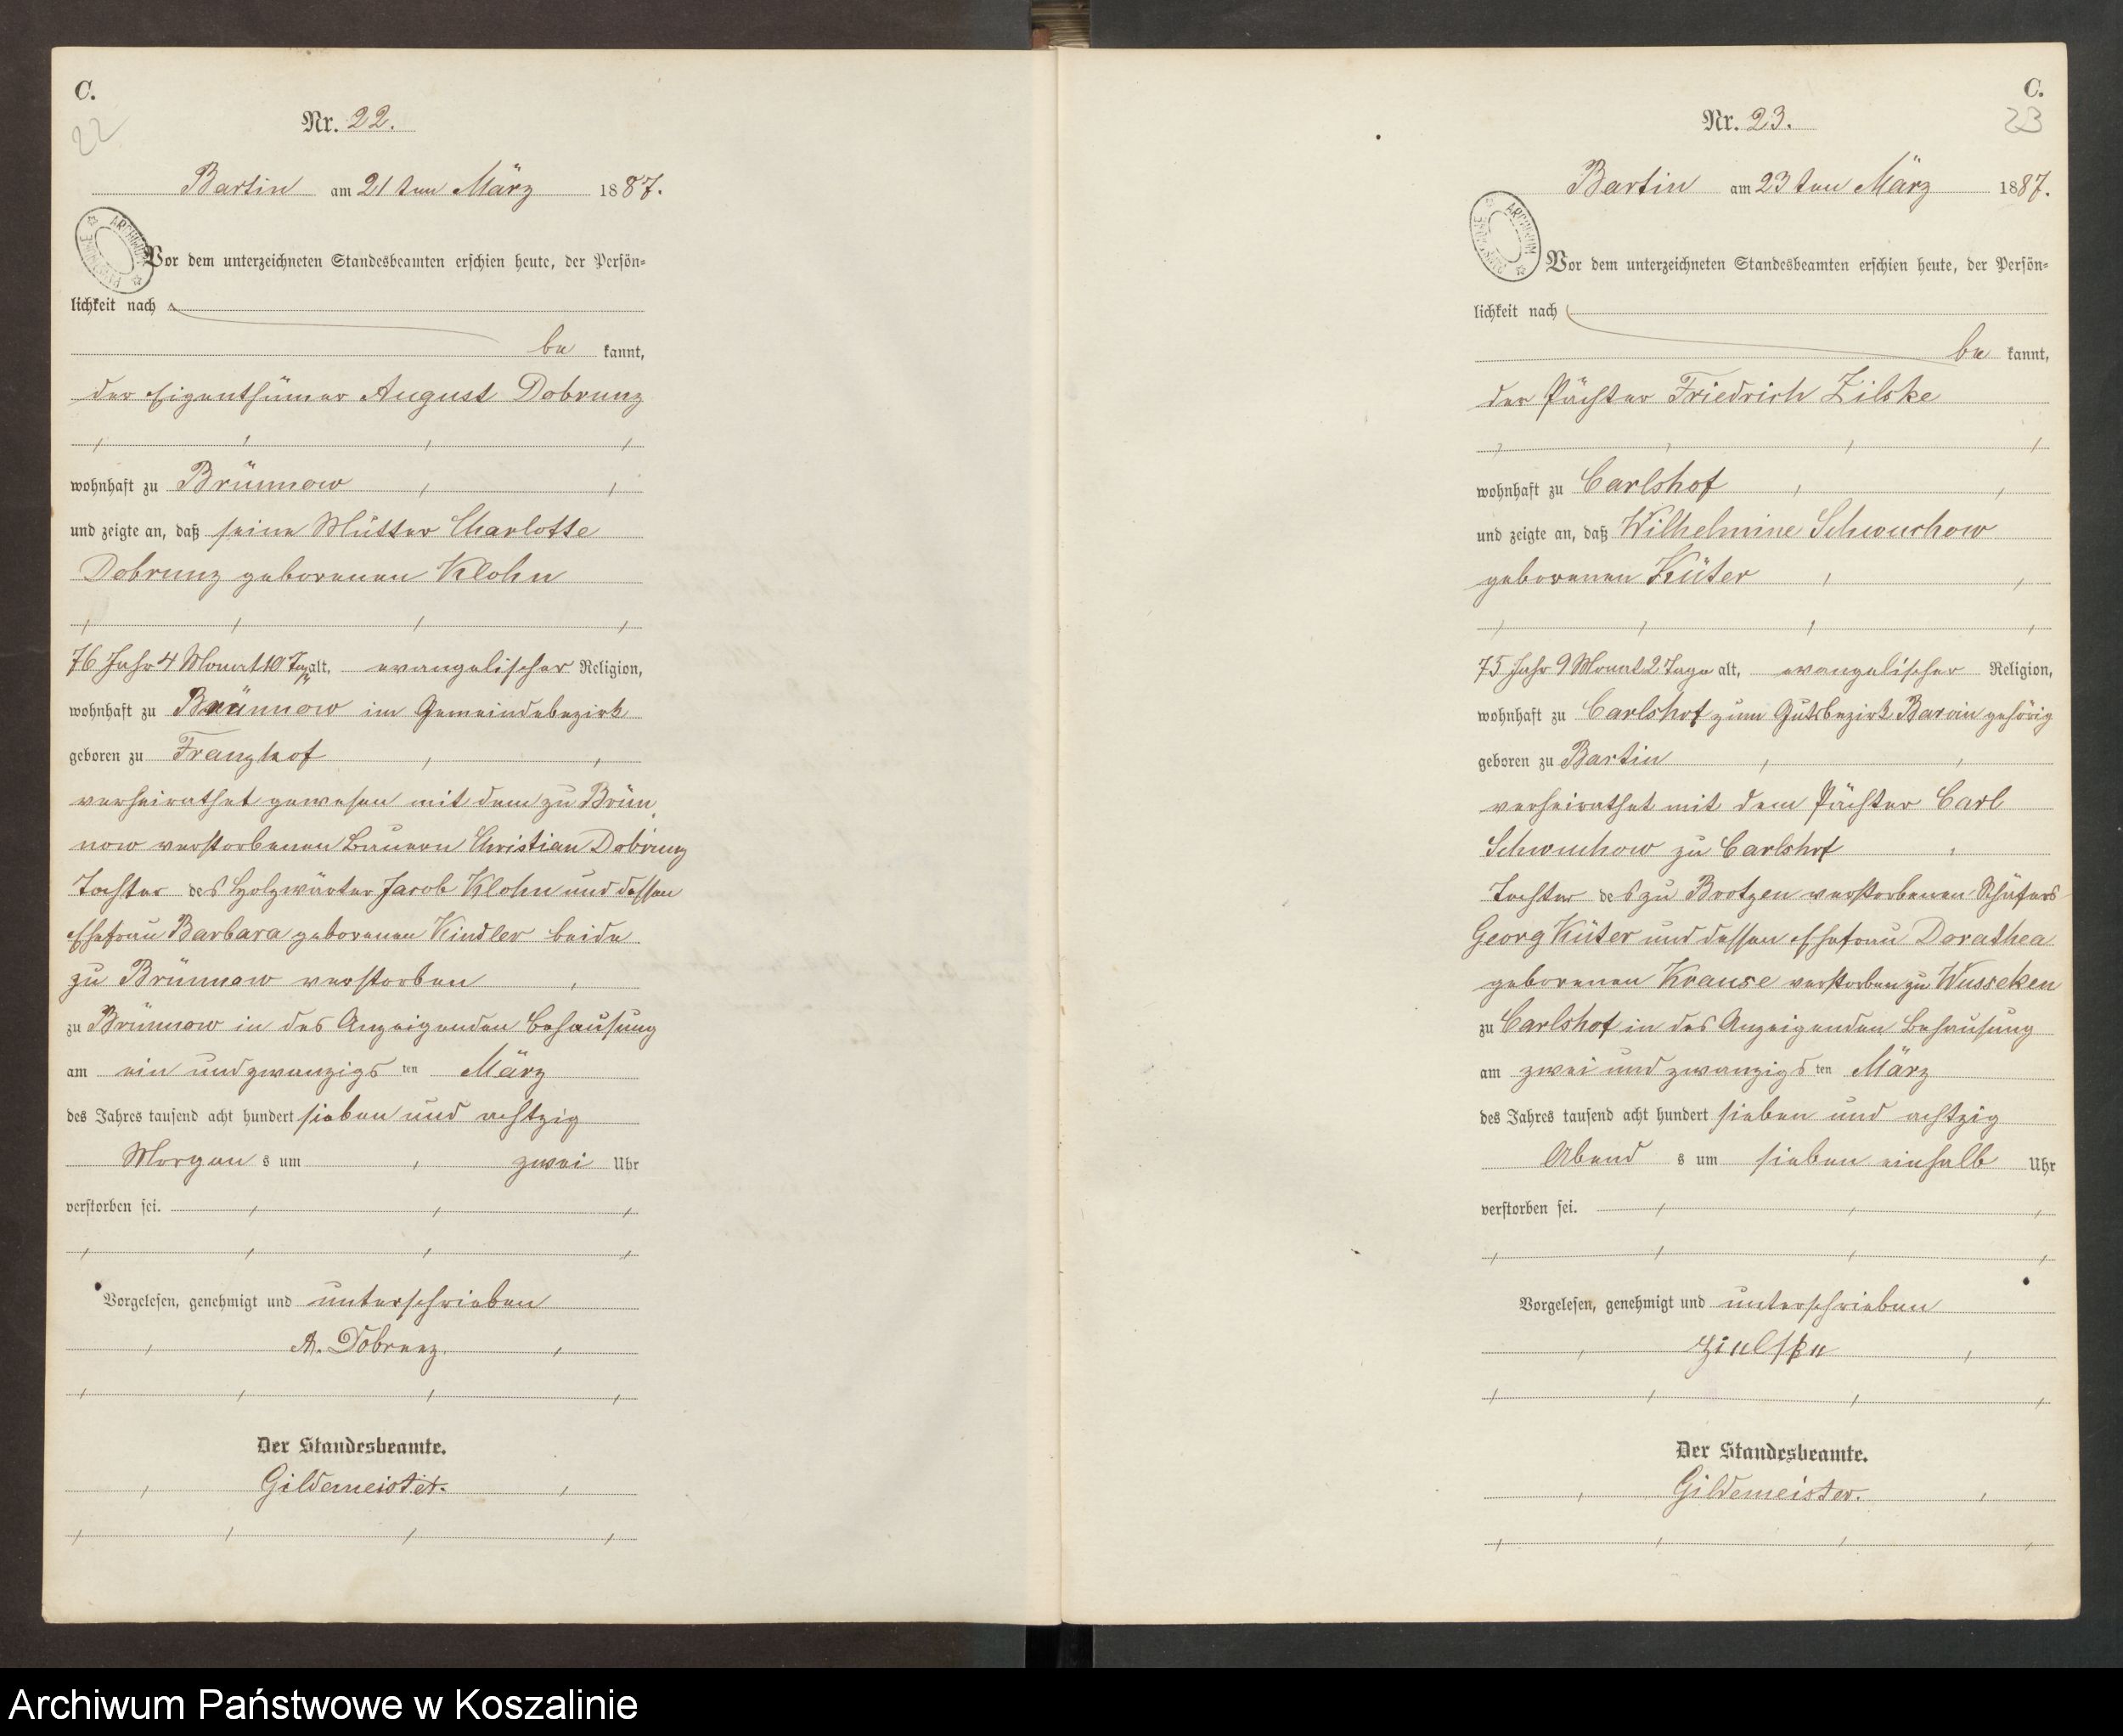 C.
22
Nr. 22.
Bartin am 21 ten März 1887.
ARCHIWUM
Vor dem unterzeichneten Standesbeamten erschien heute, der Persön-
lichkeit nach
be kannt,
der Eigenthümer August Dobrunz
wohnhaft zu Brünnow
und zeigte an, daß seine Mutter Charlotte
Dobrunz geborenen Klohn
76 Jahr 4 Monat 10 Tage alt, evangelischer Religion,
wohnhaft zu Brünnow im Gemeindebezirk
geboren zu Franzhof
verheirathet gewesen mit dem zu Brün
now verstorbenen Bauern Christian Dobrunz
Tochter des Holzwärter Jacob Klohn und dessen
Ehefrau Barbara geborenen Kindler beide
zu Brünnow verstorben
zu Brünnow in des Anzeigenden Behausung
am ein und zwanzigs ten März
des Jahres tausend acht hundert sieben und achtzig
Morgen s um zwei Uhr
verstorben sei.
Vorgelesen, genehmigt und unterschrieben
A. Dobrunz.
Der Standesbeamte.
Gildemeister.
C.
23
Nr. 23.
Bartin am 23 ten März 1887.
ARCHIWUM
Vor dem unterzeichneten Standesbeamten erschien heute, der Persön-
lichkeit nach
be kannt,
der Pächter Friedrich Zilske
wohnhaft zu Carlshof
und zeigte an, daß Wilhelmine Schwuchow
geborenen Küter
75 Jahr 9 Monat 2 Tage alt, evangelischer Religion,
wohnhaft zu Carlshof zum Gutsbezirk Barvin gehörig
geboren zu Bartin
verheirathet mit dem Pächter Carl
Schwuchow zu Carlshof
Tochter des zu Brotzen verstorbenen Schäfers
Georg Küter und dessen Ehefrau Dorathea
geborenen Krause verstorben zu Wusseken
zu Carlshof in des Anzeigenden Behausung
am zwei und zwanzigs ten März
des Jahres tausend acht hundert sieben und achtzig
Abend s um sieben einhalb Uhr
verstorben sei.
Vorgelesen, genehmigt und unterschrieben
Zielske
Der Standesbeamte.
Gildemeister.
Archiwum Państwowe w Koszalinie